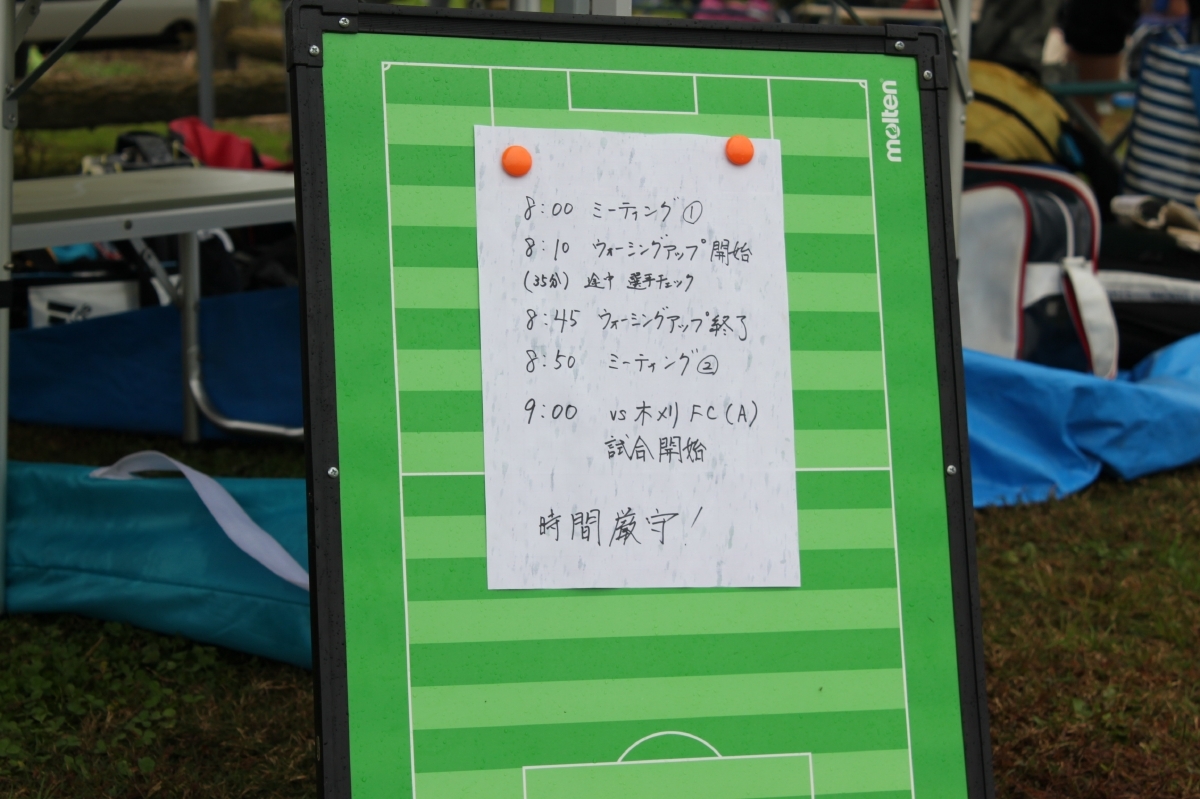 molten
8:00 ミーティング①
8:10 ウォーミングアップ開始
(35分)途中 選手チェック
8:45 ウォーミングアップ終了
8:50 ミーティング②
9:00 vs 木メリFC(A)
試合開始
時間厳守!